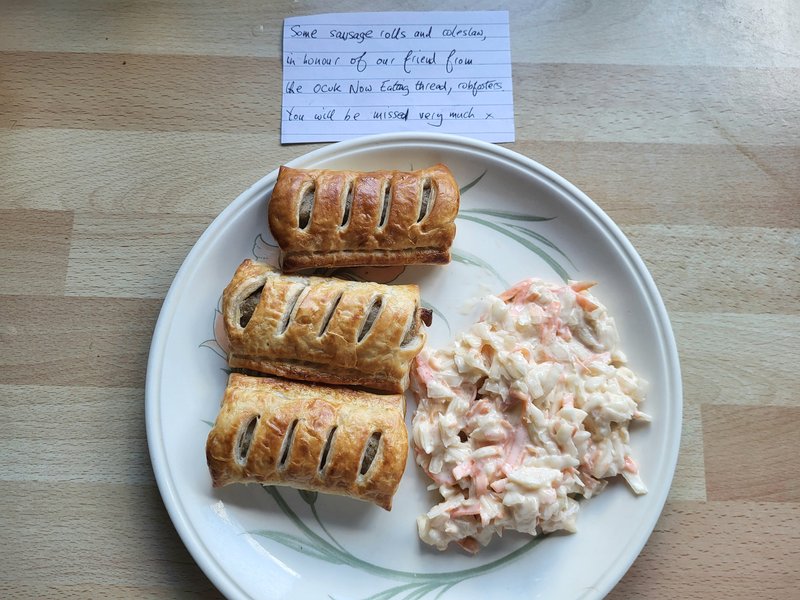 Some sausage rolls and coleslaw,
in honour of our friend from
the OCUK Now Eating thread, robfosters
You will be missed very much x